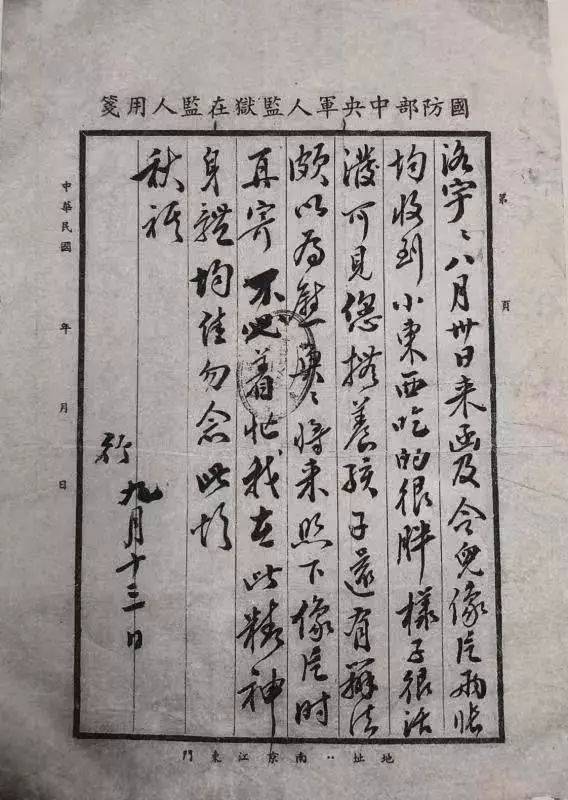 國防部中央軍人監獄在監人用箋
第　頁
洛宇：八月卅日来函及令兒像片兩張
均收到小東西吃的很胖樣子很活
潑可見您撫養孩子還有辦法
頗以為慰興：將来照下像片时
再寄不必着忙我在此精神
身體均佳勿念此頌
秋祺
九月十三日
中華民國　年　月　日
地址：南京江東門